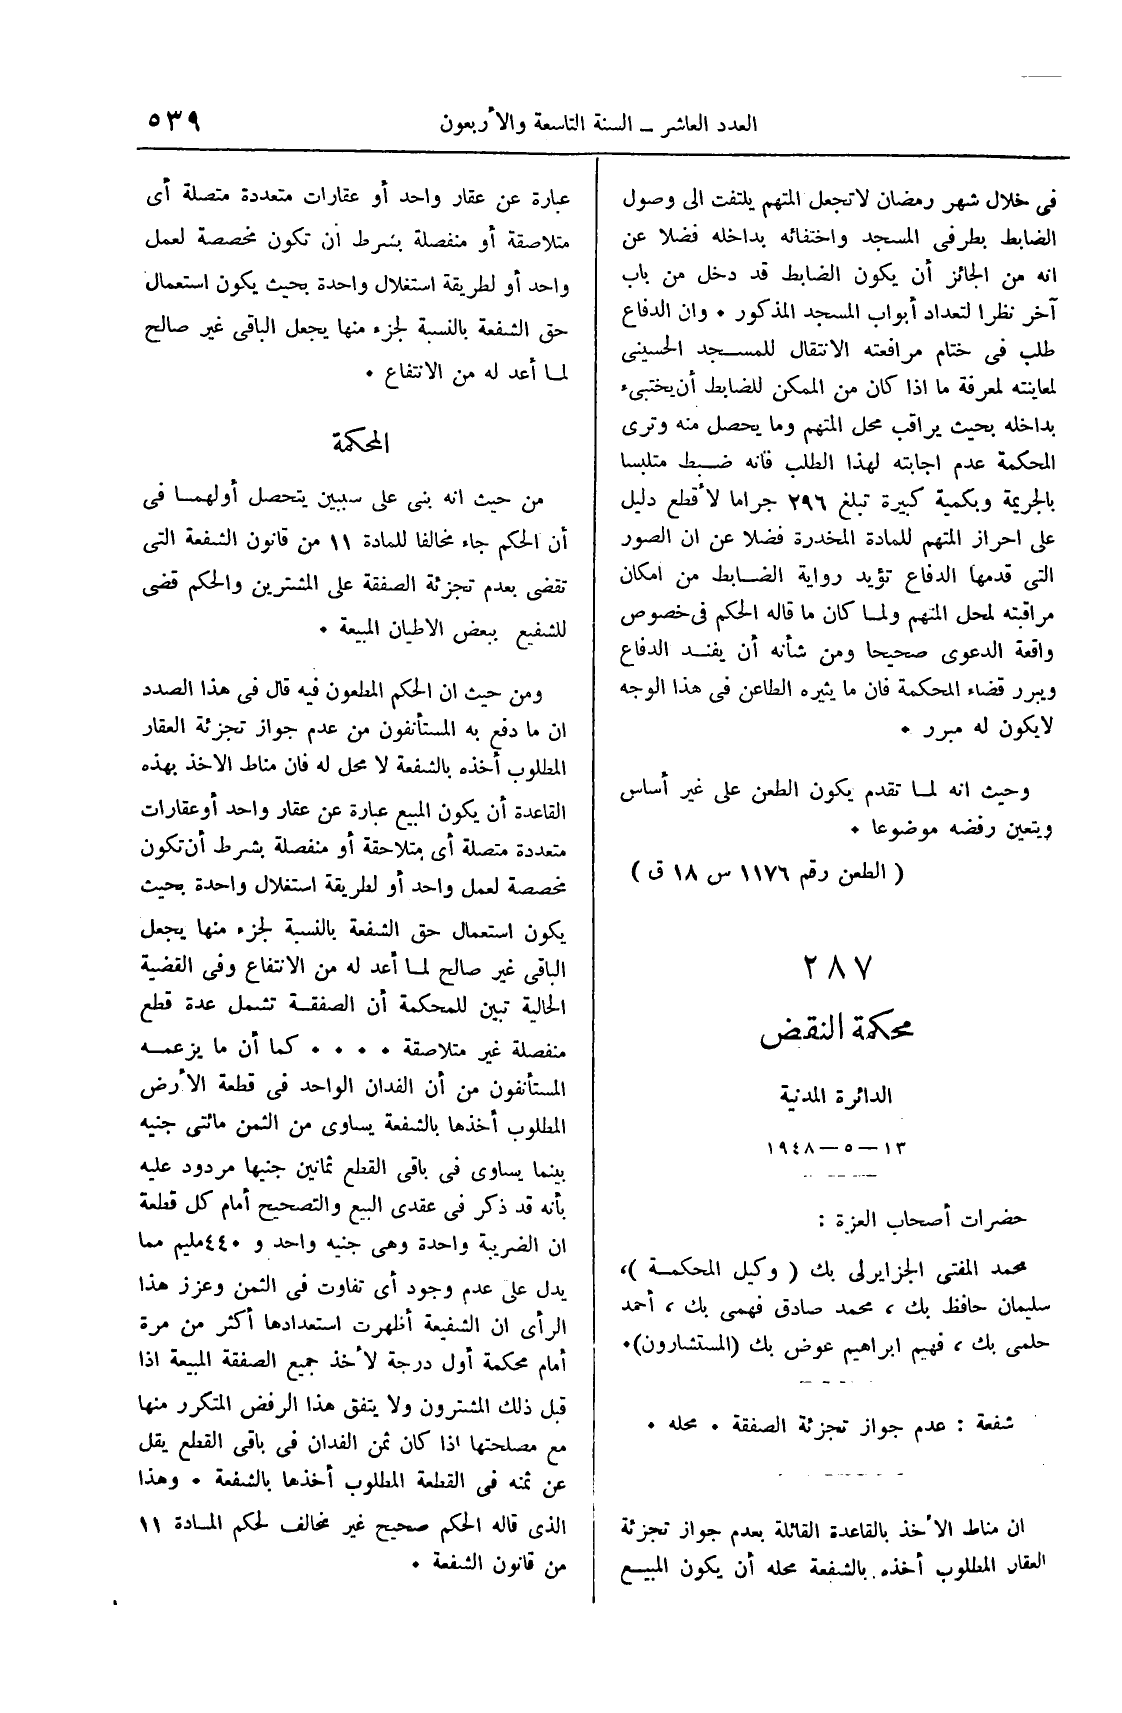 العدد العاشر ـ السنة التاسعة والأربعون
٥٣٩
فى خلال شهر رمضان لاتجعل المتهم يلتفت الى وصول
الضابط بطرفى المسجد واختفائه بداخله فضلا عن
انه من الجائز أن يكون الضابط قد دخل من باب
آخر نظرا لتعداد أبواب المسجد المذكور ٠ وان الدفاع
طلب فى ختام مرافعته الانتقال للمسجد الحسينى
لمعاينته لمعرفة ما اذا كان من الممكن للضابط أن يختبىء
بداخله بحيث يراقب محل المتهم وما يحصل منه وترى
المحكمة عدم اجابته لهذا الطلب فانه ضبط متلبسا
بالجريمة وبكمية كبيرة تبلغ ٢٩٦ جراما لأقطع دليل
على احراز المتهم للمادة المخدرة فضلا عن ان الصور
التى قدمها الدفاع تؤيد رواية الضابط من امكان
مراقبته لمحل المتهم ولما كان ما قاله الحكم فى خصوص
واقعة الدعوى صحيحا ومن شأنه أن يفند الدفاع
ويبرر قضاء المحكمة فان ما يثيره الطاعن فى هذا الوجه
لايكون له مبرر ٠
وحيث انه لما تقدم يكون الطعن على غير أساس
ويتعين رفضه موضوعا ٠
( الطعن رقم ١١٧٦ س ١٨ ق )
٢٨٧
محكمة النقض
الدائرة المدنية
١٣ — ٥ — ١٩٤٨
حضرات أصحاب العزة :
محمد المفتى الجزايرلى بك ( وكيل المحكمة )،
سليمان حافظ بك ، محمد صادق فهمى بك ، أحمد
حلمى بك ، فهيم ابراهيم عوض بك (المستشارون)٠
شفعة : عدم جواز تجزئة الصفقة ٠ محله ٠
ان مناط الأخذ بالقاعدة القائلة بعدم جواز تجزئة
العقار المطلوب أخذه بالشفعة محله أن يكون المبيع
عبارة عن عقار واحد أو عقارات متعددة متصلة أى
متلاصقة أو منفصلة بشرط ان تكون مخصصة لعمل
واحد أو لطريقة استغلال واحدة بحيث يكون استعمال
حق الشفعة بالنسبة لجزء منها يجعل الباقى غير صالح
لما أعد له من الانتفاع ٠
المحكمة
من حيث انه بنى على سببين يتحصل أولهما فى
أن الحكم جاء مخالفا للمادة ١١ من قانون الشفعة التى
تقضى بعدم تجزئة الصفقة على المشترين والحكم قضى
للشفيع ببعض الاطيان المبيعة ٠
ومن حيث ان الحكم المطعون فيه قال فى هذا الصدد
ان ما دفع به المستأنفون من عدم جواز تجزئة العقار
المطلوب أخذه بالشفعة لا محل له فان مناط الاخذ بهذه
القاعدة أن يكون المبيع عبارة عن عقار واحد أوعقارات
متعددة متصلة أى متلاحقة أو منفصلة بشرط أن تكون
مخصصة لعمل واحد أو لطريقة استغلال واحدة بحيث
يكون استعمال حق الشفعة بالنسبة لجزء منها يجعل
الباقى غير صالح لما أعد له من الانتفاع وفى القضية
الحالية تبين للمحكمة أن الصفقة تشمل عدة قطع
منفصلة غير متلاصقة ٠ ٠ ٠ ٠ كما أن ما يزعمه
المستأنفون من أن الفدان الواحد فى قطعة الأرض
المطلوب أخذها بالشفعة يساوى من الثمن مائتى جنيه
بينما يساوى فى باقى القطع ثمانين جنيها مردود عليه
بأنه قد ذكر فى عقدى البيع والتصحيح أمام كل قطعة
ان الضريبة واحدة وهى جنيه واحد و ٤٤٠مليم مما
يدل على عدم وجود أى تفاوت فى الثمن وعزز هذا
الرأى ان الشفيعة أظهرت استعدادها أكثر من مرة
أمام محكمة أول درجة لأخذ جميع الصفقة المبيعة اذا
قبل ذلك المشترون ولا يتفق هذا الرفض المتكرر منها
مع مصلحتها اذا كان ثمن الفدان فى باقى القطع يقل
عن ثمنه فى القطعة المطلوب أخذها بالشفعة ٠ وهذا
الذى قاله الحكم صحيح غير مخالف لحكم المادة ١١
من قانون الشفعة ٠